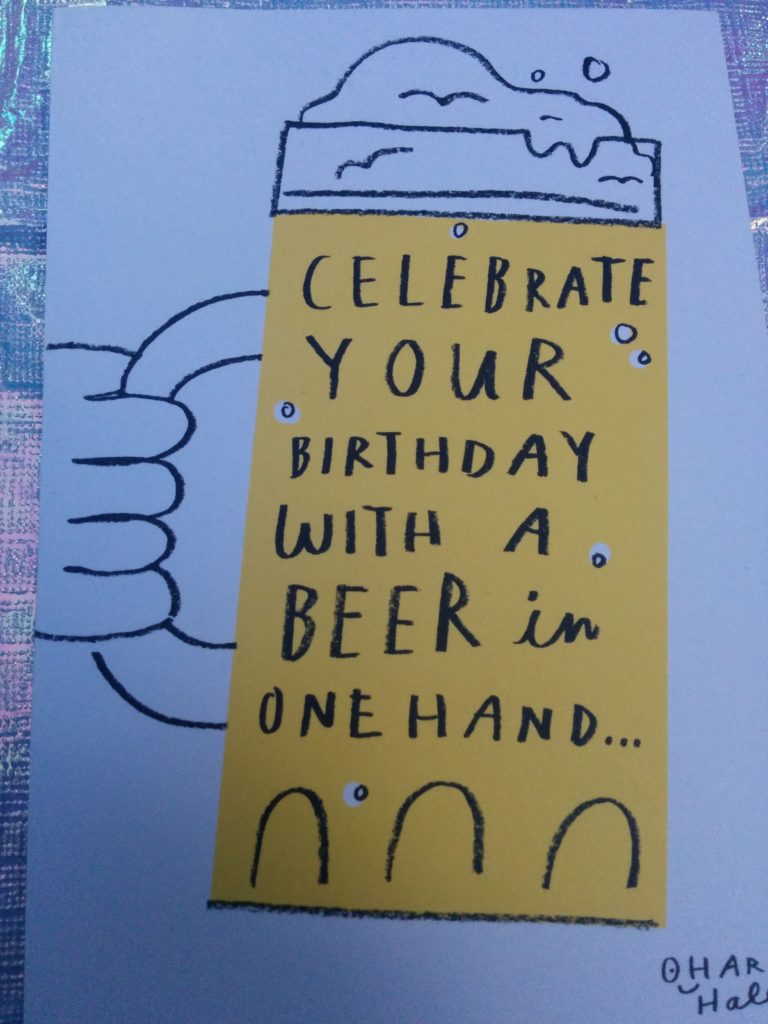 CELEBRATE
YOUR
BIRTHDAY
WITH A
BEER in
ONE HAND...